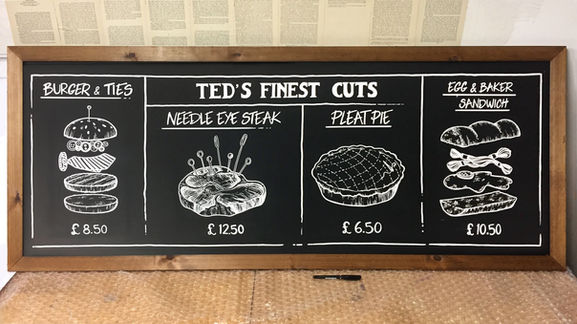 TED'S FINEST CUTS
BURGER & TIES
£ 8.50
NEEDLE EYE STEAK
£ 12.50
PLEAT PIE
£ 6.50
EGG & BAKER
SANDWICH
£ 10.50